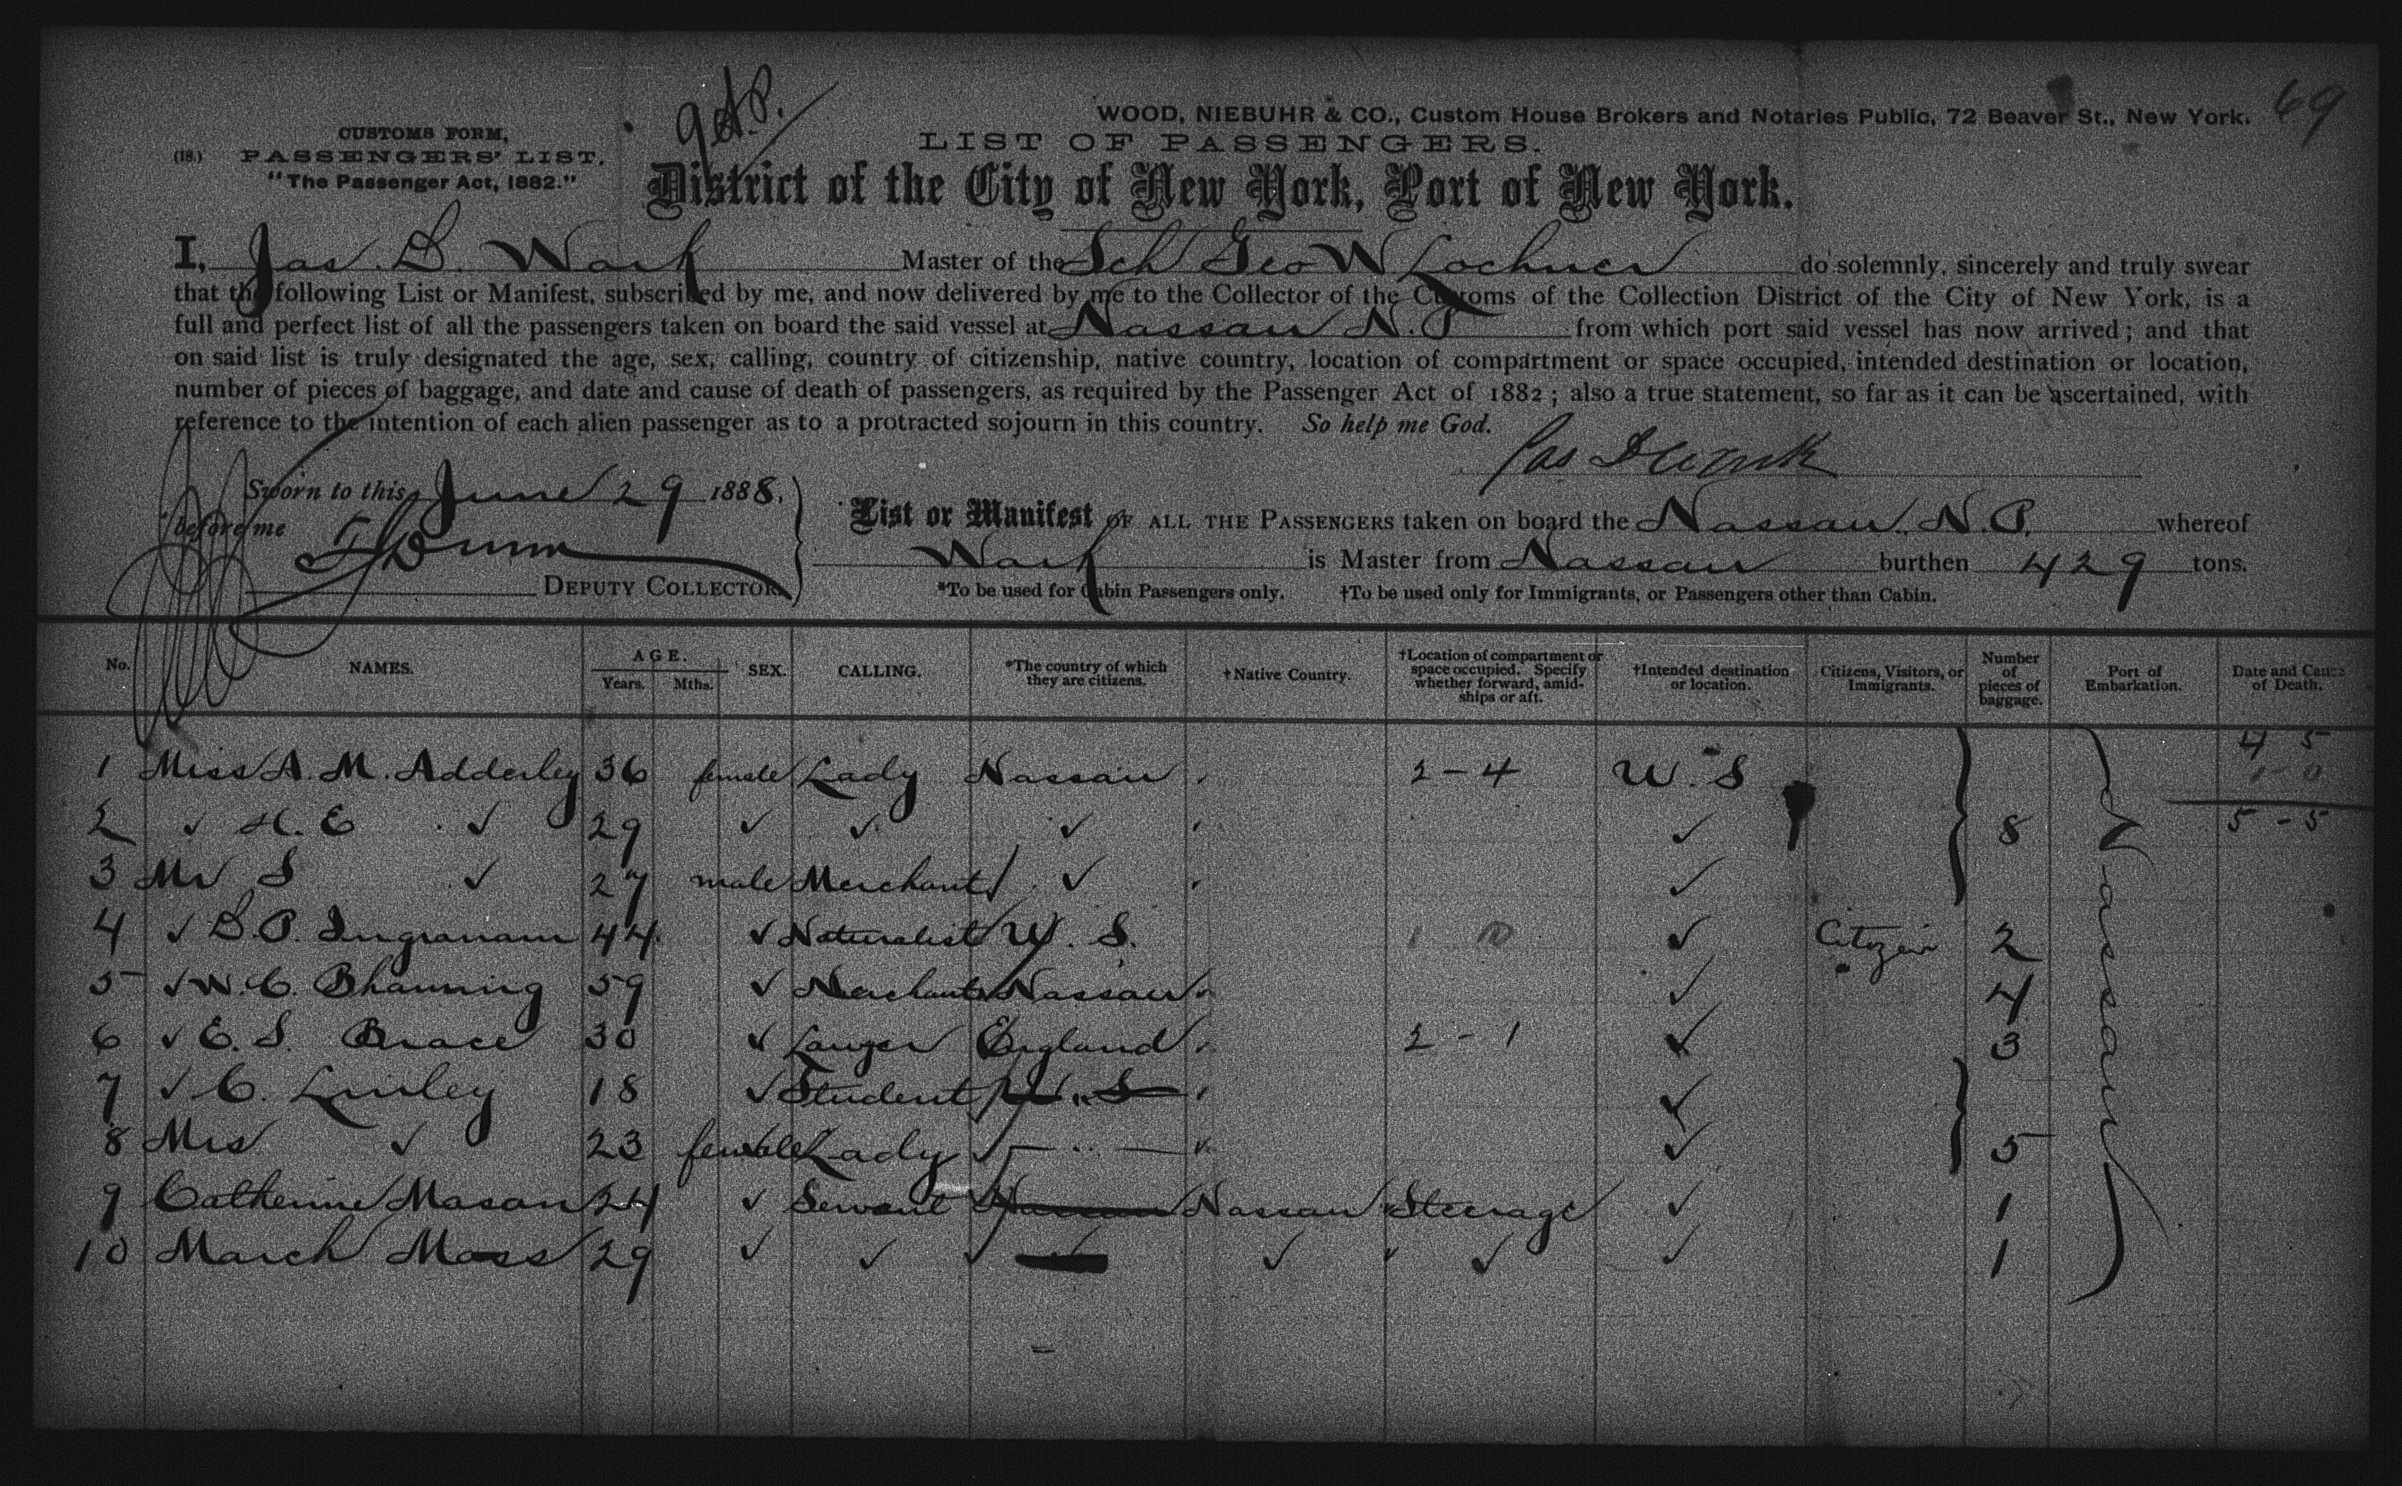 69
WOOD, NIEBUHR & CO., Custom House Brokers and Notaries Public, 72 Beaver St., New York.
CUSTOMS FORM,
(18.) PASSENGERS' LIST.
"The Passenger Act, 1882."
LIST OF PASSENGERS.
District of the City of New York, Port of New York.
I, Jas. D. Wark Master of the Sch Geo W Lochner do solemnly, sincerely and truly swear
that the following List or Manifest, subscribed by me, and now delivered by me to the Collector of the Customs of the Collection District of the City of New York, is a
full and perfect list of all the passengers taken on board the said vessel at Nassau N. P from which port said vessel has now arrived; and that
on said list is truly designated the age, sex, calling, country of citizenship, native country, location of compartment or space occupied, intended destination or location,
number of pieces of baggage, and date and cause of death of passengers, as required by the Passenger Act of 1882; also a true statement, so far as it can be ascertained, with
reference to the intention of each alien passenger as to a protracted sojourn in this country. So help me God.
Jas D Wark
Sworn to this June 29 1888.
before me
Dunn
DEPUTY COLLECTOR.
List or Manifest OF ALL THE PASSENGERS taken on board the Nassau. N. P. whereof
Wark is Master from Nassau burthen 429 tons.
*To be used for Cabin Passengers only. †To be used only for Immigrants, or Passengers other than Cabin.
No. NAMES. AGE. Years. Mths. SEX. CALLING. *The country of which they are citizens. †Native Country. †Location of compartment or space occupied. Specify whether forward, amidships or aft. †Intended destination or location. Citizens, Visitors, or Immigrants. Number of pieces of baggage. Port of Embarkation. Date and Cause of Death.
4 5
1-0
5-5
1 Miss A. M. Adderley 36 female Lady Nassau 2-4 U. S
2 ✓ H. E ✓ 29 ✓ ✓ ✓ ✓ 8 Nassau
3 Mr S ✓ 27 male Merchant ✓ ✓
4 ✓ D. P. Ingraham 44 ✓ Naturalist U. S. 1 ✓ Citizen 2
5 ✓ W. C. Channing 59 ✓ Merchant Nassau ✓ 4
6 ✓ E. S. Brace 30 ✓ Lawyer England 2-1 ✓ 3
7 ✓ C. Linley 18 ✓ Student U. S ✓
8 Mrs ✓ 23 female Lady ✓ 5
9 Catherine Mason 24 ✓ Servant Nassau Nassau Steerage ✓ 1
10 March Moss 29 ✓ ✓ ✓ ✓ ✓ ✓ 1